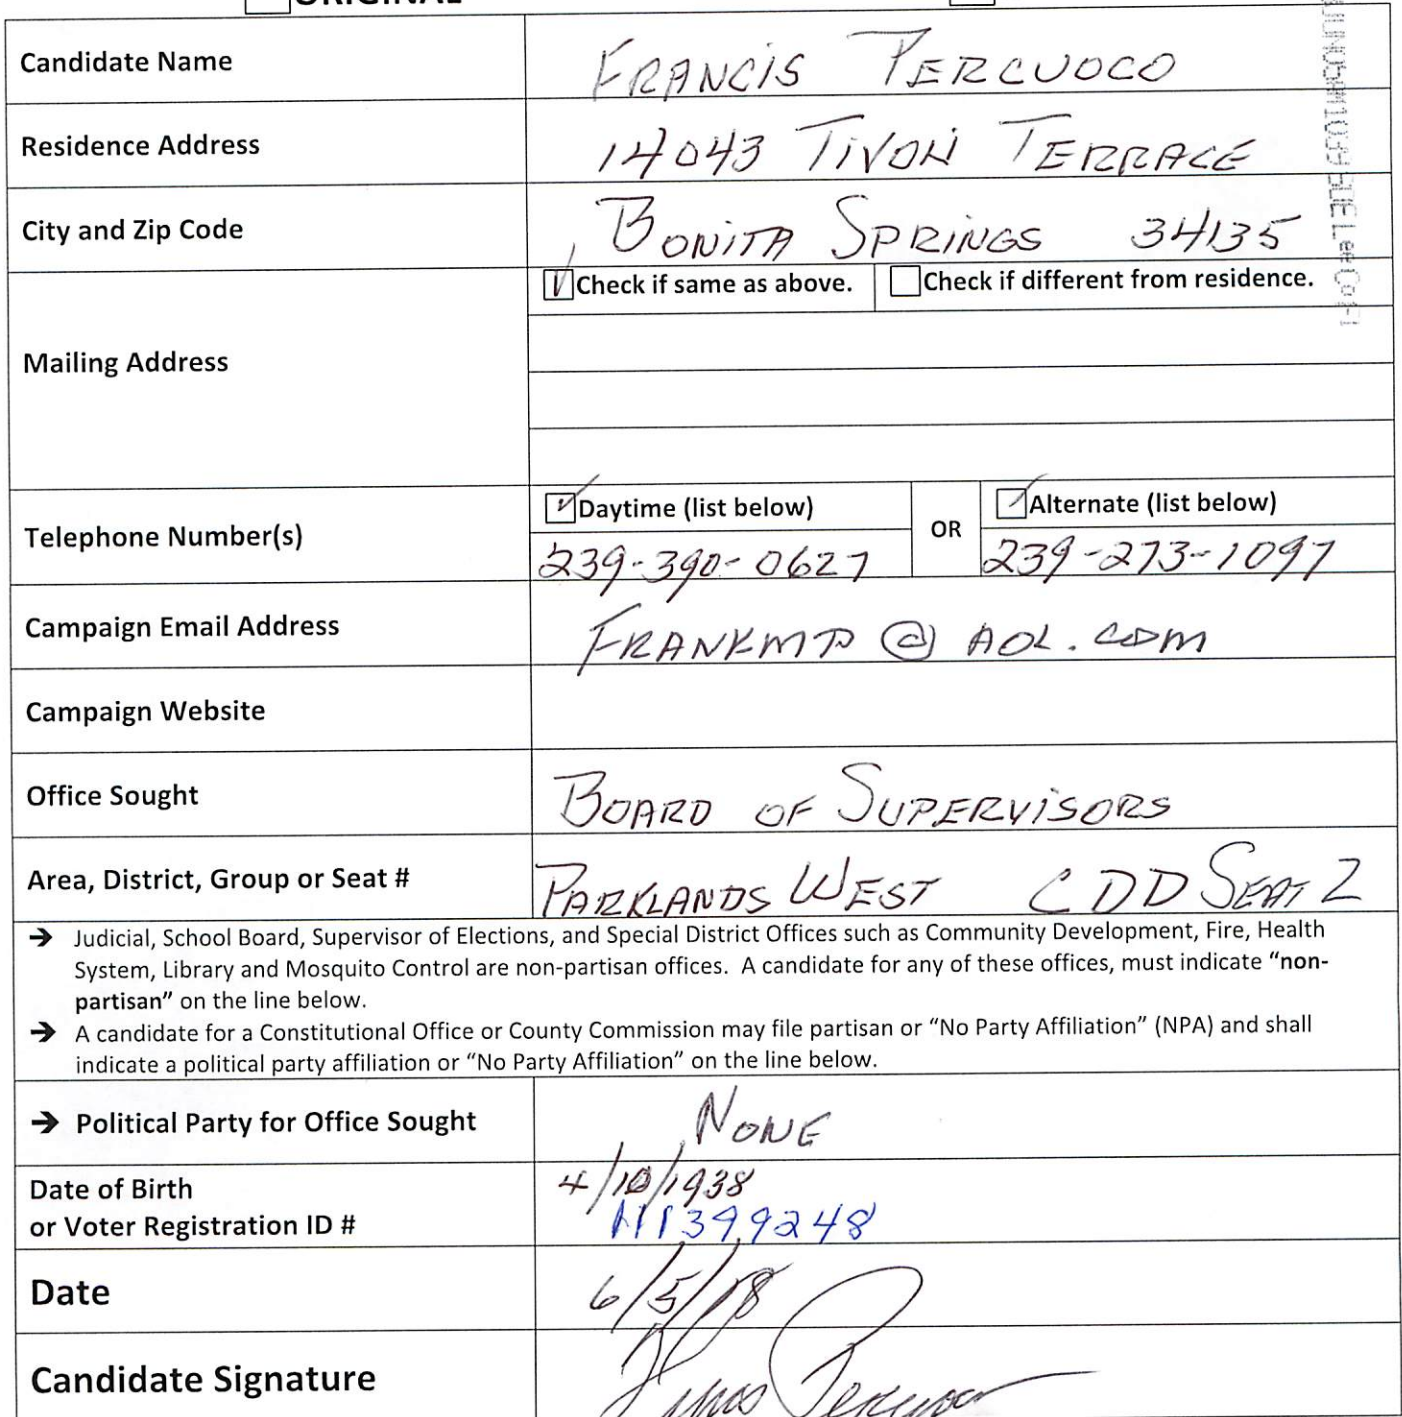 ORIGINAL
Candidate Name FRANCIS PERCUOCO
Residence Address 14043 TIVOLI TERRACE
City and Zip Code BONITA SPRINGS 34135
Check if same as above. Check if different from residence.
Mailing Address
Daytime (list below) OR Alternate (list below)
Telephone Number(s) 239-390-0627 239-273-1097
Campaign Email Address FRANKMP @ AOL.COM
Campaign Website
Office Sought BOARD OF SUPERVISORS
Area, District, Group or Seat # PARKLANDS WEST CDD SEAT 2
→ Judicial, School Board, Supervisor of Elections, and Special District Offices such as Community Development, Fire, Health
System, Library and Mosquito Control are non-partisan offices. A candidate for any of these offices, must indicate “non-
partisan” on the line below.
→ A candidate for a Constitutional Office or County Commission may file partisan or “No Party Affiliation” (NPA) and shall
indicate a political party affiliation or “No Party Affiliation” on the line below.
→ Political Party for Office Sought NONE
Date of Birth 4/10/1938
or Voter Registration ID # 111399248
Date 6/5/18
Candidate Signature